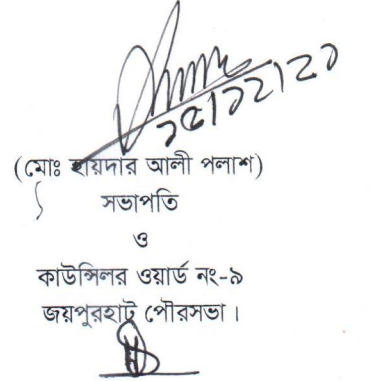 (মোঃ হায়দার আলী পলাশ)
সভাপতি
ও
কাউন্সিলর ওয়ার্ড নং-৯
জয়পুরহাট পৌরসভা।